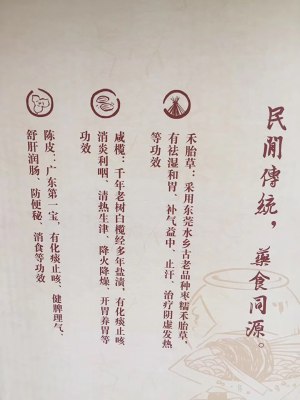 民間傳統，藥食同源。
禾胎草：采用东莞水乡古老品种枣糯禾胎草，
有祛湿和胃、补气益中、止汗、治疗阴虚发热
等功效
咸榄：千年老树白榄经多年盐渍，有化痰止咳
消炎利咽、清热生津、降火降燥、开胃养胃等
功效
陈皮：广东第一宝，有化痰止咳、健脾理气、
舒肝润肠、防便秘、消食等功效